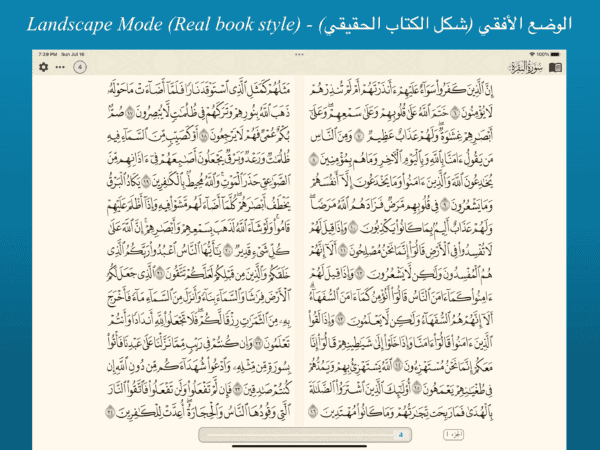 Landscape Mode (Real book style) - الوضع الأفقي (شكل الكتاب الحقيقي)
7:39 PM Sun Jul 16
100%
4
سورة البقرة
إِنَّ ٱلَّذِينَ كَفَرُوا۟ سَوَآءٌ عَلَيْهِمْ ءَأَنذَرْتَهُمْ أَمْ لَمْ تُنذِرْهُمْ
لَا يُؤْمِنُونَ ٦ خَتَمَ ٱللَّهُ عَلَىٰ قُلُوبِهِمْ وَعَلَىٰ سَمْعِهِمْ ۖ وَعَلَىٰٓ
أَبْصَٰرِهِمْ غِشَٰوَةٌ ۖ وَلَهُمْ عَذَابٌ عَظِيمٌ ٧ وَمِنَ ٱلنَّاسِ
مَن يَقُولُ ءَامَنَّا بِٱللَّهِ وَبِٱلْيَوْمِ ٱلْءَاخِرِ وَمَا هُم بِمُؤْمِنِينَ ٨
يُخَٰدِعُونَ ٱللَّهَ وَٱلَّذِينَ ءَامَنُوا۟ وَمَا يَخْدَعُونَ إِلَّآ أَنفُسَهُمْ
وَمَا يَشْعُرُونَ ٩ فِى قُلُوبِهِم مَّرَضٌ فَزَادَهُمُ ٱللَّهُ مَرَضًا ۖ
وَلَهُمْ عَذَابٌ أَلِيمٌۢ بِمَا كَانُوا۟ يَكْذِبُونَ ١٠ وَإِذَا قِيلَ لَهُمْ
لَا تُفْسِدُوا۟ فِى ٱلْأَرْضِ قَالُوٓا۟ إِنَّمَا نَحْنُ مُصْلِحُونَ ١١ أَلَآ إِنَّهُمْ
هُمُ ٱلْمُفْسِدُونَ وَلَٰكِن لَّا يَشْعُرُونَ ١٢ وَإِذَا قِيلَ لَهُمْ
ءَامِنُوا۟ كَمَآ ءَامَنَ ٱلنَّاسُ قَالُوٓا۟ أَنُؤْمِنُ كَمَآ ءَامَنَ ٱلسُّفَهَآءُ ۗ
أَلَآ إِنَّهُمْ هُمُ ٱلسُّفَهَآءُ وَلَٰكِن لَّا يَعْلَمُونَ ١٣ وَإِذَا لَقُوا۟
ٱلَّذِينَ ءَامَنُوا۟ قَالُوٓا۟ ءَامَنَّا وَإِذَا خَلَوْا۟ إِلَىٰ شَيَٰطِينِهِمْ قَالُوٓا۟ إِنَّا
مَعَكُمْ إِنَّمَا نَحْنُ مُسْتَهْزِءُونَ ١٤ ٱللَّهُ يَسْتَهْزِئُ بِهِمْ وَيَمُدُّهُمْ
فِى طُغْيَٰنِهِمْ يَعْمَهُونَ ١٥ أُو۟لَٰٓئِكَ ٱلَّذِينَ ٱشْتَرَوُا۟ ٱلضَّلَٰلَةَ
بِٱلْهُدَىٰ فَمَا رَبِحَت تِّجَٰرَتُهُمْ وَمَا كَانُوا۟ مُهْتَدِينَ ١٦
مَثَلُهُمْ كَمَثَلِ ٱلَّذِى ٱسْتَوْقَدَ نَارًا فَلَمَّآ أَضَآءَتْ مَا حَوْلَهُۥ
ذَهَبَ ٱللَّهُ بِنُورِهِمْ وَتَرَكَهُمْ فِى ظُلُمَٰتٍ لَّا يُبْصِرُونَ ١٧ صُمٌّۢ
بُكْمٌ عُمْىٌ فَهُمْ لَا يَرْجِعُونَ ١٨ أَوْ كَصَيِّبٍ مِّنَ ٱلسَّمَآءِ فِيهِ
ظُلُمَٰتٌ وَرَعْدٌ وَبَرْقٌ يَجْعَلُونَ أَصَٰبِعَهُمْ فِىٓ ءَاذَانِهِم مِّنَ
ٱلصَّوَٰعِقِ حَذَرَ ٱلْمَوْتِ ۚ وَٱللَّهُ مُحِيطٌۢ بِٱلْكَٰفِرِينَ ١٩ يَكَادُ ٱلْبَرْقُ
يَخْطَفُ أَبْصَٰرَهُمْ ۖ كُلَّمَآ أَضَآءَ لَهُم مَّشَوْا۟ فِيهِ وَإِذَآ أَظْلَمَ عَلَيْهِمْ
قَامُوا۟ ۚ وَلَوْ شَآءَ ٱللَّهُ لَذَهَبَ بِسَمْعِهِمْ وَأَبْصَٰرِهِمْ ۚ إِنَّ ٱللَّهَ عَلَىٰ
كُلِّ شَىْءٍ قَدِيرٌ ٢٠ يَٰٓأَيُّهَا ٱلنَّاسُ ٱعْبُدُوا۟ رَبَّكُمُ ٱلَّذِى
خَلَقَكُمْ وَٱلَّذِينَ مِن قَبْلِكُمْ لَعَلَّكُمْ تَتَّقُونَ ٢١ ٱلَّذِى جَعَلَ لَكُمُ
ٱلْأَرْضَ فِرَٰشًا وَٱلسَّمَآءَ بِنَآءً وَأَنزَلَ مِنَ ٱلسَّمَآءِ مَآءً فَأَخْرَجَ
بِهِۦ مِنَ ٱلثَّمَرَٰتِ رِزْقًا لَّكُمْ ۖ فَلَا تَجْعَلُوا۟ لِلَّهِ أَندَادًا وَأَنتُمْ
تَعْلَمُونَ ٢٢ وَإِن كُنتُمْ فِى رَيْبٍ مِّمَّا نَزَّلْنَا عَلَىٰ عَبْدِنَا فَأْتُوا۟
بِسُورَةٍ مِّن مِّثْلِهِۦ وَٱدْعُوا۟ شُهَدَآءَكُم مِّن دُونِ ٱللَّهِ إِن
كُنتُمْ صَٰدِقِينَ ٢٣ فَإِن لَّمْ تَفْعَلُوا۟ وَلَن تَفْعَلُوا۟ فَٱتَّقُوا۟ ٱلنَّارَ
ٱلَّتِى وَقُودُهَا ٱلنَّاسُ وَٱلْحِجَارَةُ ۖ أُعِدَّتْ لِلْكَٰفِرِينَ ٢٤
4
الجزء ١